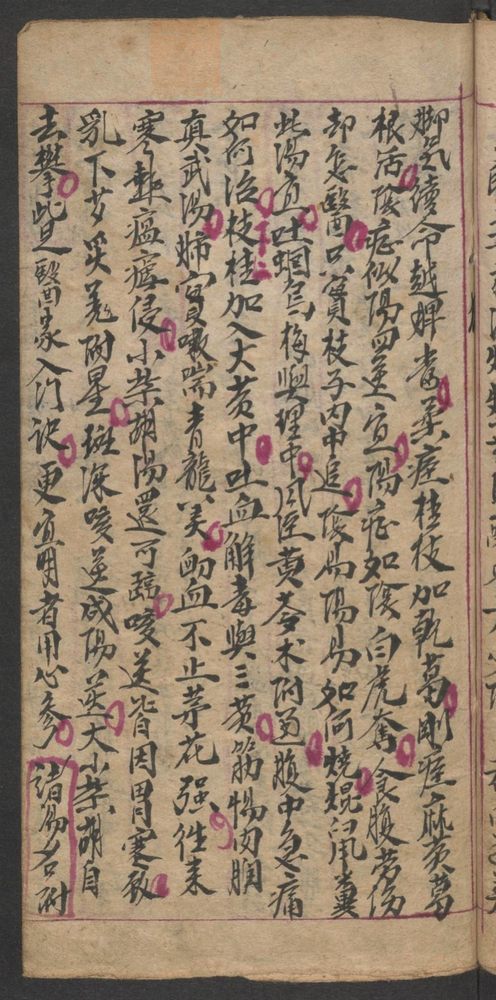 脚氣續命越婢當柔痓桂枝加乾葛剛痓麻黃葛
根活陰症似陽四逆宜陽症如陰白虎奪食腹勞傷
却怎醫只實枝子內中追陰易陽易如何燒裩鼠糞
此湯宜吐蛔烏梅與理中風湿黃芩术附通腹中急痛
如何治枝桂加入大黃中吐血解毒與三黃筋惕肉瞤
真武湯姊實嗽喘青龍以美衂血不止茅花强往来
寒熱瘟瘧侵小柴胡湯還可䟽噯送皆因胃寒致
乳下芍羌附星斑深噯逆咸陽逆大小柴胡自
去攀此是醫家入门訣更宜明者用心參 諸湯名附